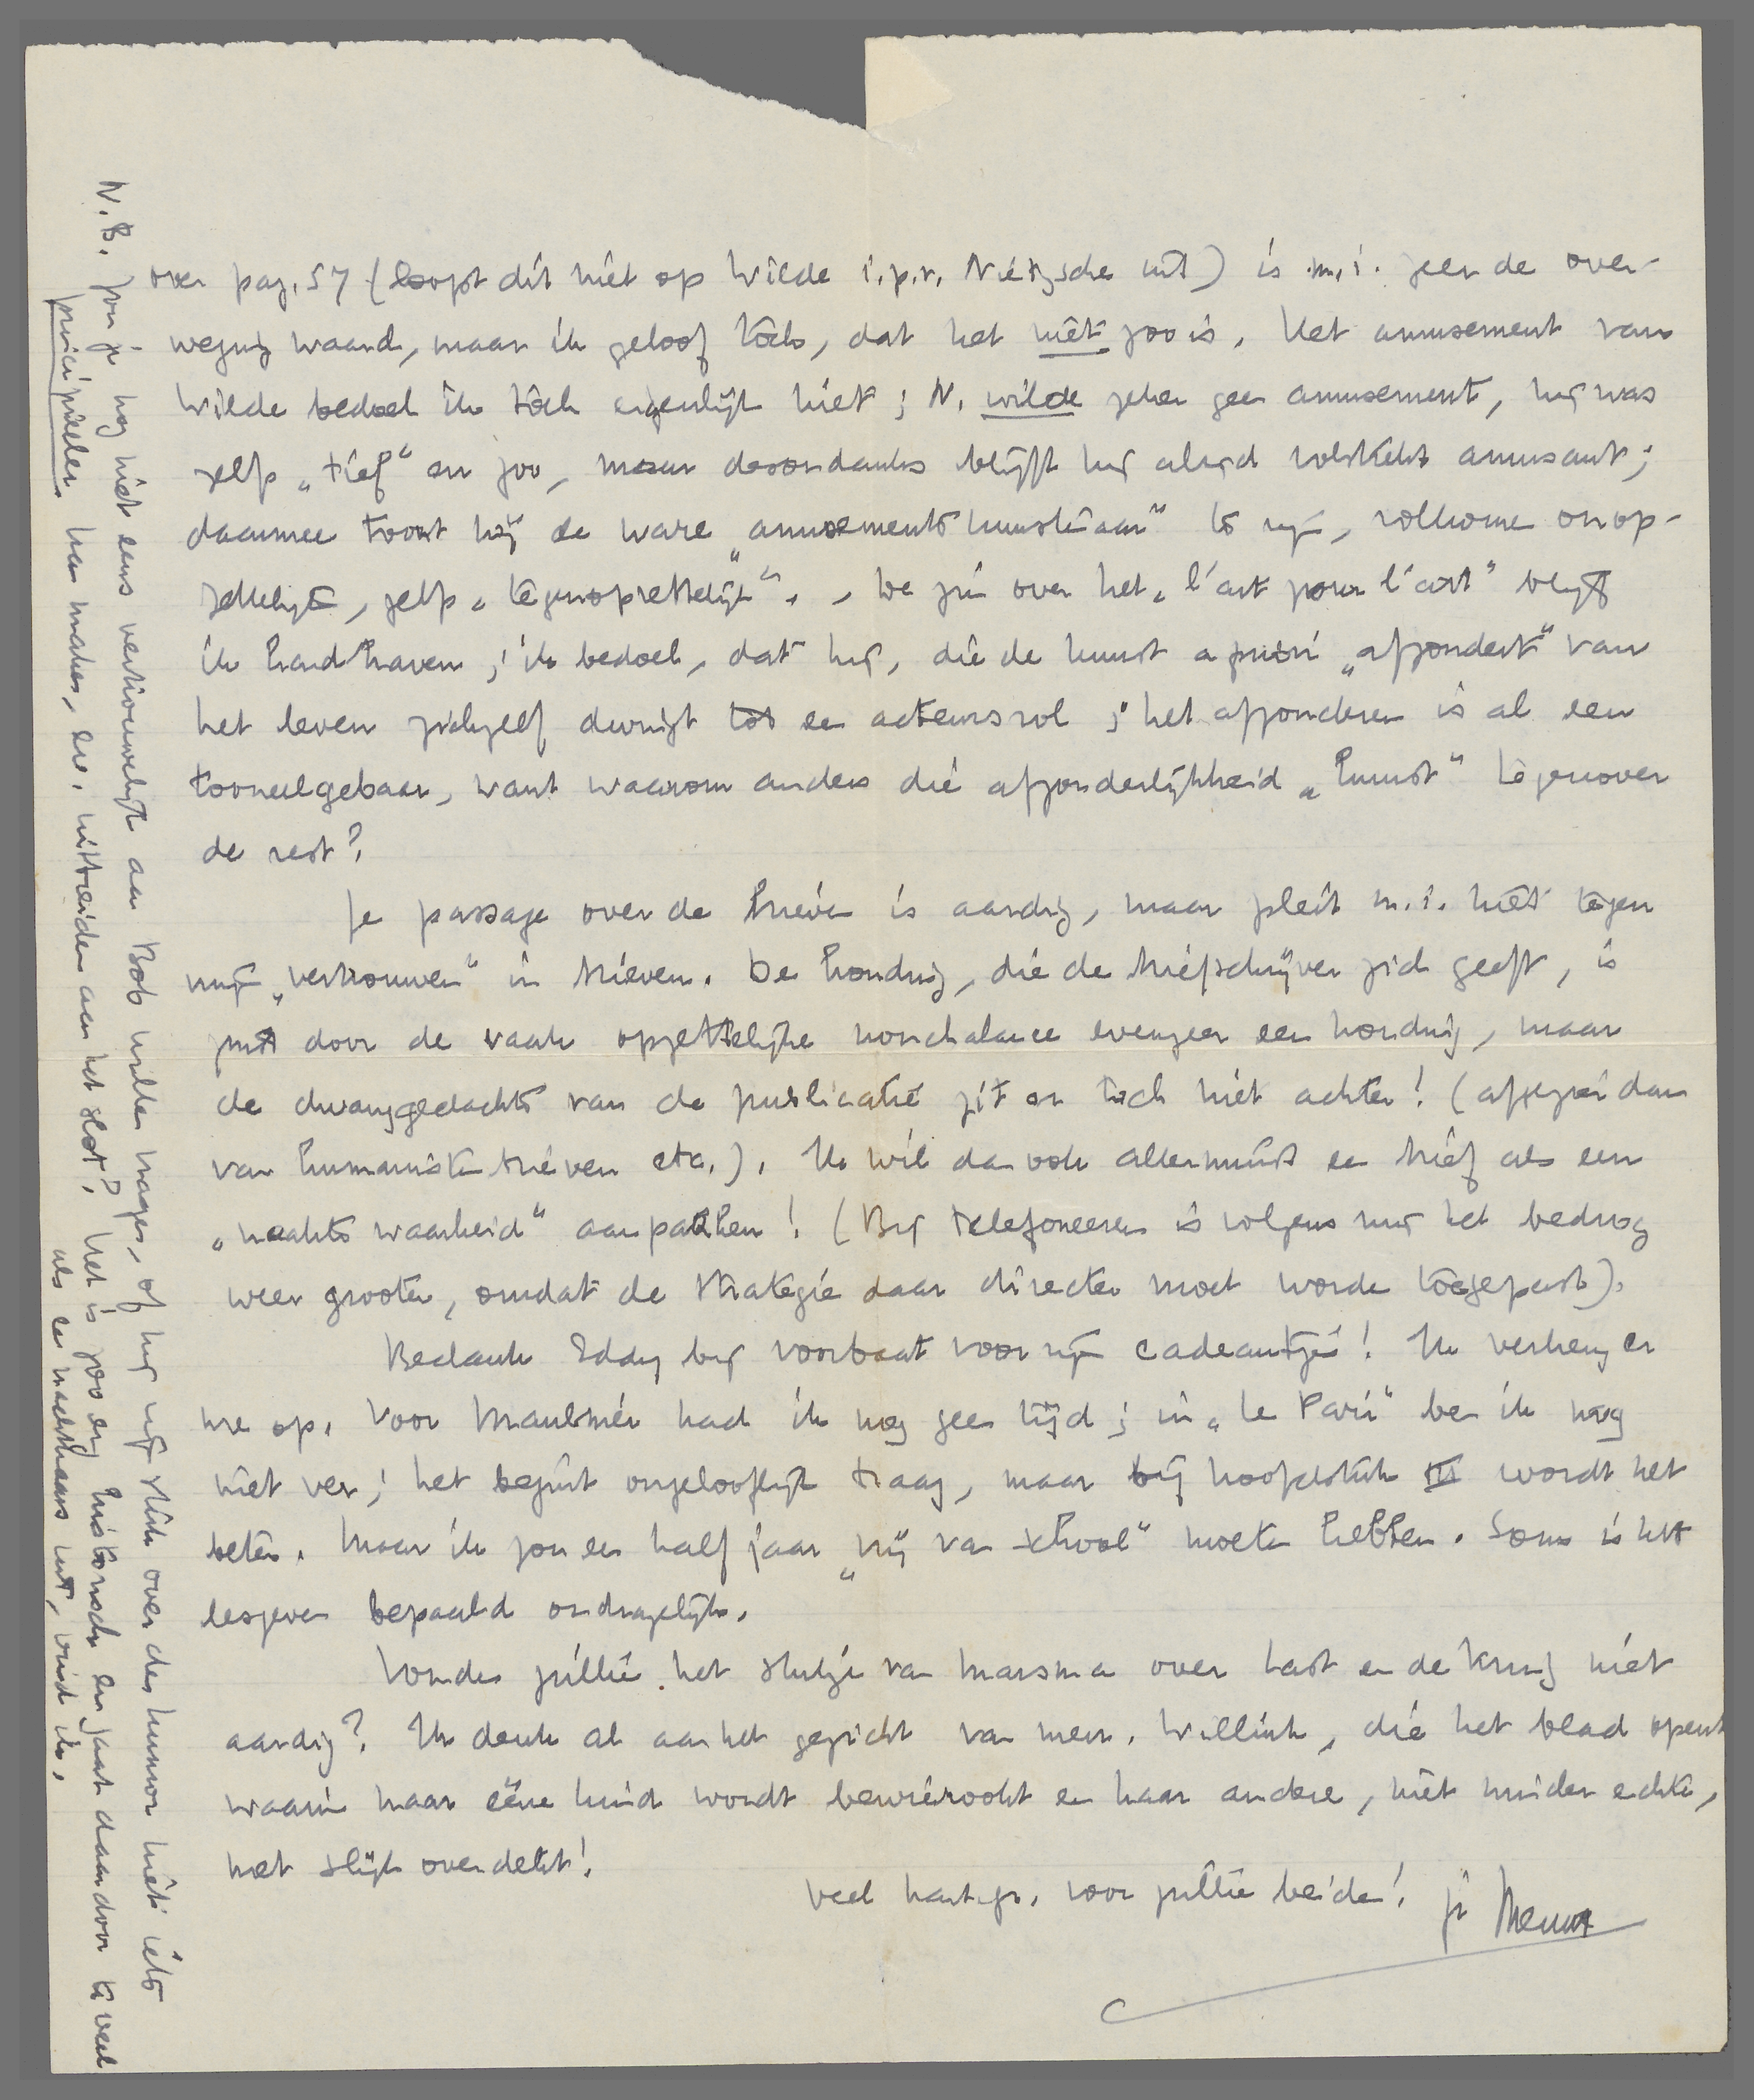 over pag. 57 (loopt dit niet op Wilde i.p.v. Nietzsche uit) is m.i. zeer de over-
weging waard, maar ik geloof toch, dat het niet zoo is. Het amusement van
Wilde bedoel ik toch eigenlijk niet; N. wilde zeker geen amusement, hij was
zelfs „tief" en zoo, maar desondanks blijft hij altijd volstrekt amusant;
daarmee toont hij de ware „amusementskunstenaar" te zijn, volkomen onop-
zettelijk, zelfs „tegenopzettelijk". , De zin over het „l'art pour l'art" blijf
ik handhaven; ik bedoel, dat hij, die de kunst a priori „afzondert" van
het leven zichzelf dwingt tot een acteursrol; het afzonderen is al een
tooneelgebaar, want waarom anders die afzonderlijkheid „kunst" tegenover
de rest?
Je passage over de brieven is aardig, maar pleit m.i. niet tegen
mijn „vertrouwen" in brieven. De houding, die de briefschrijver zich geeft, is
juist door de vaak opzettelijke nonchalance evenzeer een houding, maar
de dwanggedachte van de publicatie zit er toch niet achter! (afgezien dan
van humanistenbrieven etc.). Ik wil dan ook allerminst een brief als een
„naakte waarheid" aanpakken! (Bij telefoneeren is volgens mij het bedrog
weer grooter, omdat de strategie daar directer moet worden toegepast).
Bedank Eddy bij voorbaat voor zijn cadeautjes! Ik verheug er
me op. Voor Maulnier had ik nog geen tijd; in „Le Pari" ben ik nog
niet ver; het begint ongelooflijk traag, maar bij hoofdstuk III wordt het
beter. Maar ik zou een half jaar „vrij van school" moeten hebben. Soms is het
lesgeven bepaald ondragelijk.
Vonden jullie het stukje van Marsman over Last en de Kruif niet
aardig? Ik denk al aan het gezicht van mevr. Willink, die het blad opent
waarin haar eene kind wordt bewierookt en haar andere, niet minder echte,
met slijk overdekt!
Veel hart. gr. voor jullie beiden! je Menno
N.B. Zou je nog niet eens vertrouwelijk aan Bob willen vragen, of hij zijn stuk over den humor niet iets
principieeler kan maken, en. uitbreiden aan het slot? Het is zoo erg historisch en gaat daardoor te veel
als een nachtkaars uit, vind ik.